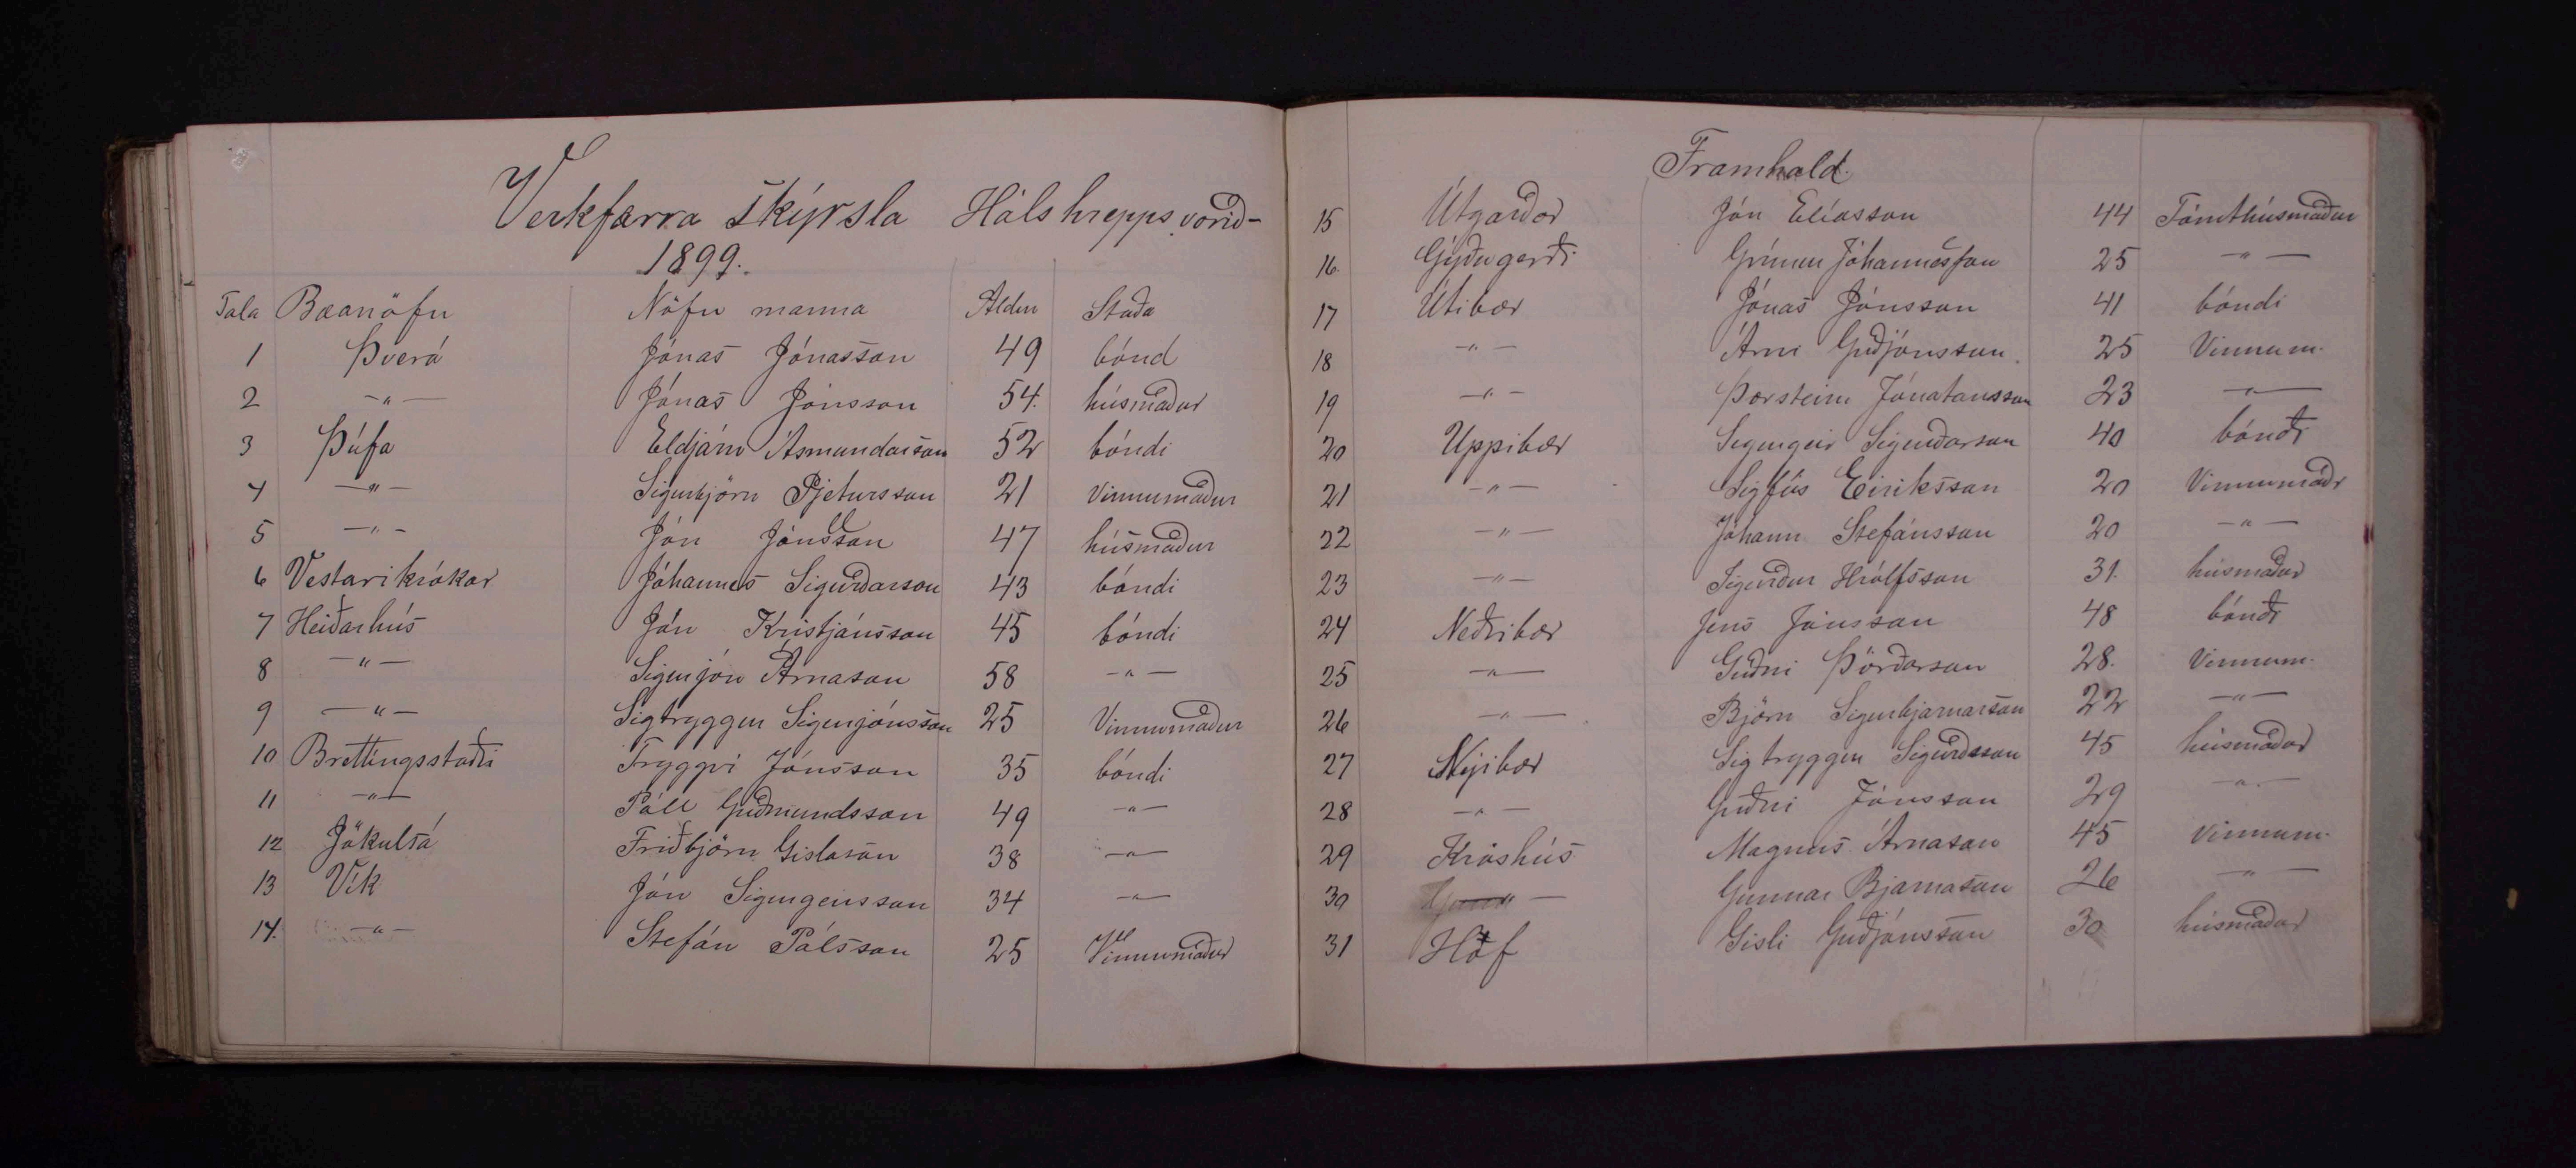 Verkfærra skýrsla Hálshrepps vorið-
1899.
Tala Bæanöfn Nöfn manna Aldur Staða
1 Þverá Jónas Jónasson 49 bónd
2 -"- Jónas Jónsson 54. húsmaður
3 Þúfa Eldjárn Ásmundarson 52 bóndi
4 -"- Sigurbjörn Pjetursson 21 Vinnumaður
5 -"- Jón Jónsson 47 húsmaður
6 Vestarikrókar Jóhannes Sigurðarson 43 bóndi
7 Heiðarhús Jón Kristjánsson 45 bóndi
8 -"- Sigurjón Árnason 58 -"-
9 -"- Sigtryggur Sigurjónsson 25 Vinnumaður
10 Brettingsstaðir Tryggvi Jónsson 35 bóndi
11 -"- Páll Guðmundsson 49 -"-
12 Jökulsá Friðbjörn Gislason 38 -"-
13 Vík Jón Sigurgeirsson 34 -"-
14. -"- Stefán Pálsson 25 Vinnumaður
Framhald.
15 Útgarðar Jón Elíasson 44 Tómthúsmaður
16. Gýðugerði Grímur Jóhannesson 25 -"-
17 Útibær Jónas Jónsson 41 bóndi
18 -"- Árni Guðjónsson 25 Vinnum.
19 -"- Þorsteinn Jónatansson 23 -"-
20 Uppibær Sigurgeir Sigurðarson 40 bóndi
21 -"- Sigfús Eiriksson 20 Vinnumaðr
22 -"- Jóhann Stefánsson 20 -"-
23 -"- Sigurður Hrólfsson 31. húsmaður
24 Neðribær Jens Jónsson 48 bóndi
25 -"- Guðni Þórðarson 28. Vinnum.
26 -"- Björn Sigurbjarnarson 22 -"-
27 Nýibær Sigtryggur Sigurðsson 45 húsmaður
28 -"- Guðni Jónsson 29 -"-
29 Króshús Magnús Árnason 45 Vinnum.
30 -"- Gunnar Bjarnason 26 -"-
31 Hof Gisli Guðjónsson 30 húsmaður